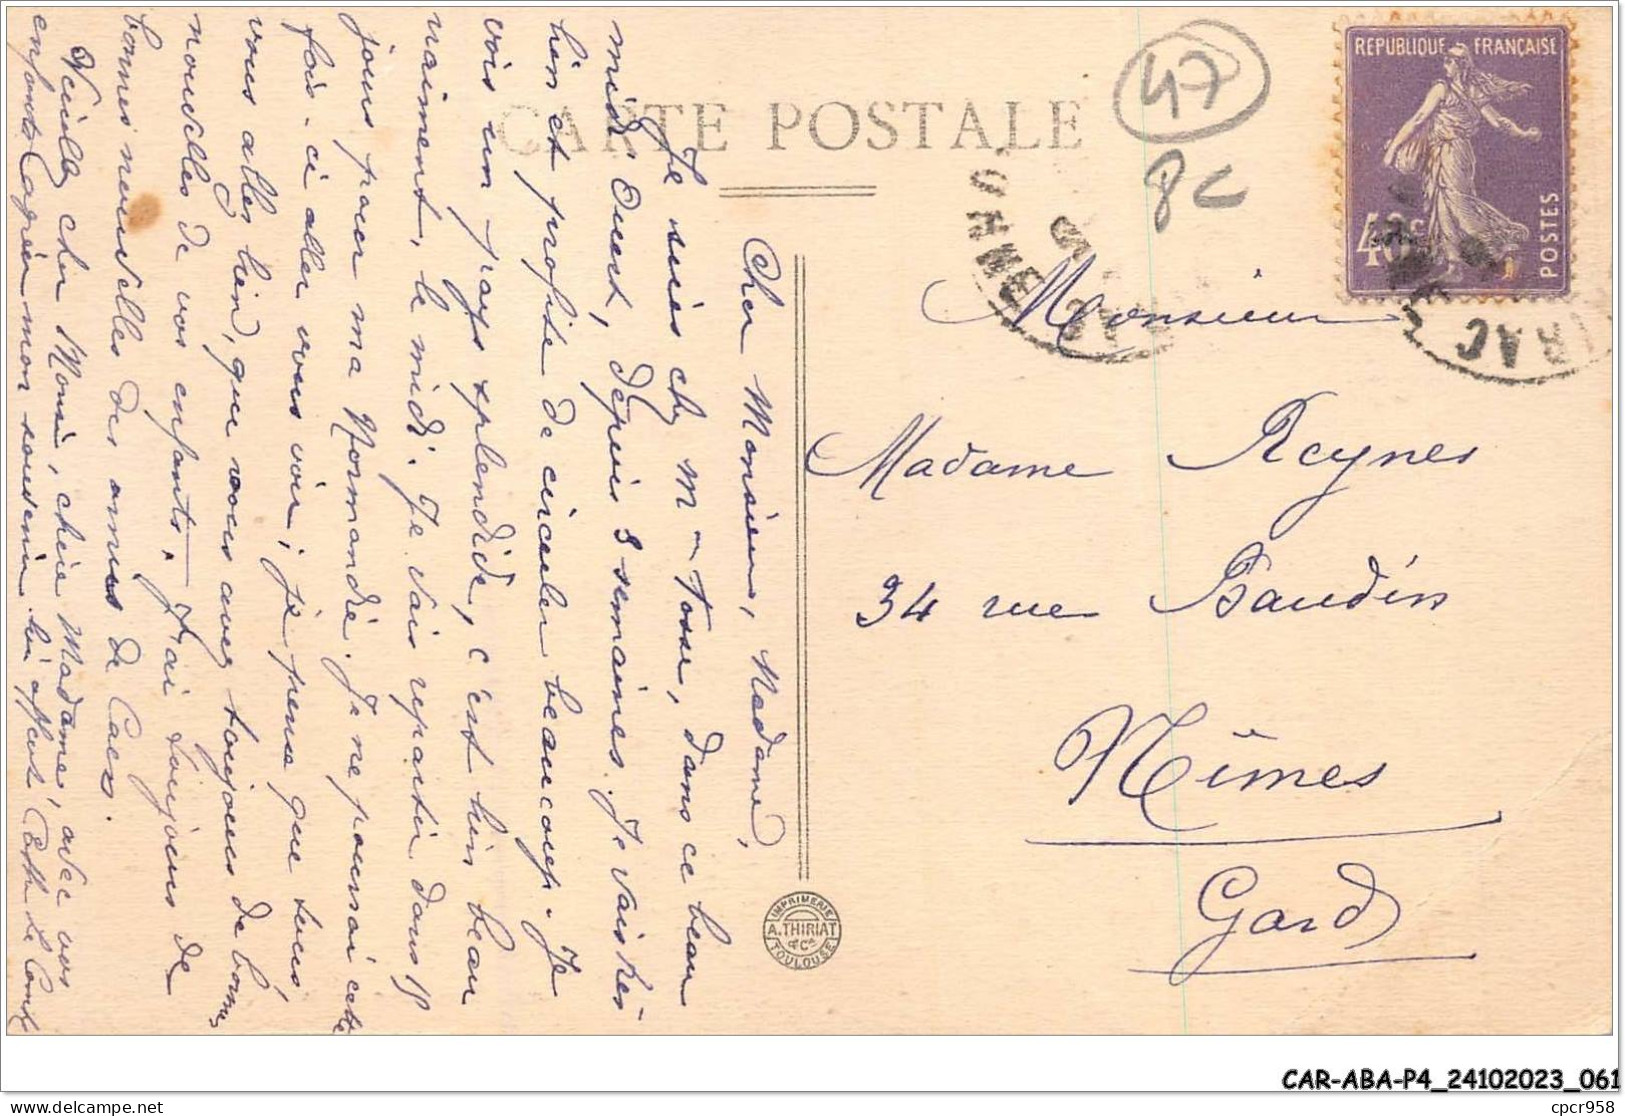 CARTE POSTALE
47
8C
REPUBLIQUE FRANÇAISE
40c
POSTES
Monsieur
Madame Reynes
34 rue Baudin
Nîmes
Gard
IMPRIMERIE
A. THIRIAT
& Cie
TOULOUSE
Cher Monsieur, Madame,
Je suis chez M Tosse, dans ce beau
midi Ouest, depuis 3 semaines. Je vais très
bien et profite de circuler beaucoup. Je
vois un pays splendide, c'est bien beau
vraiment, le midi. Je vais repartir dans 15
jours pour ma Normandie. Je ne pourrai cette
fois-ci aller vous voir; je pense que tous,
vous allez bien, que vous avez toujours de bonnes
nouvelles de vos enfants. J'ai toujours de
bonnes nouvelles des amies de Caen.
Veuillez cher Monsieur, chère Madame, avec vos
enfants agréer mon souvenir
CAR-ABA-P4_24102023_061
cpcr958